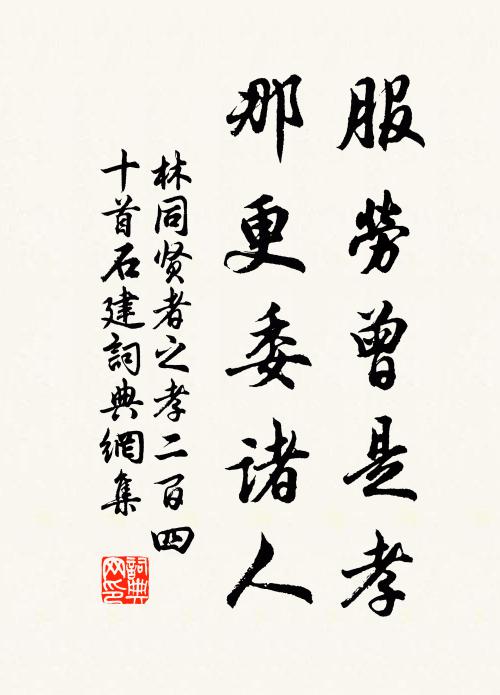 服勞曾是孝
那更委諸人
林同贤者之孝二百四
十首石建詞典網集
詞典网印